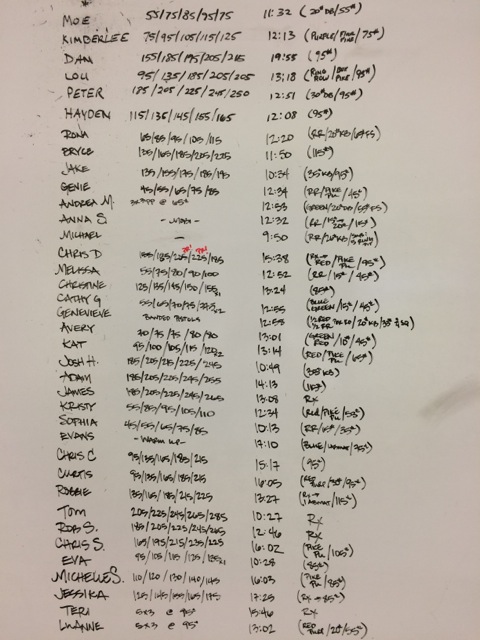 MOE 55/75/85/75/75 11:32 (20#DB/55#)
KIMBERLEE 75/95/105/115/125 12:13 (PURPLE/ /75#)
DAN 155/185/195/205/215 19:55 (95#)
LOU 95/135/185/205/205 13:18 (RING ROW/ /95#)
PETER 185/205/225/245/250 12:51 (30#DB/95#)
HAYDEN 115/135/145/155/165 12:08 (95#)
RONA 65/85/95/105/115 12:20 (RR/20#KB/65#FS)
BRYCE 135/165/185/205/225 11:50 (115#)
JAKE 135/155/175/185/195 10:34 (35#KB/95#)
GENIE 45/55/65/75/85 12:34 (RR/PIKE PU/45#)
ANDREA M. @ 65# 12:53 (GREEN/20#DB/55#FS)
ANNA S. 12:32 (RR/ /15#)
MICHAEL — 9:50 (RR/20#KB/ )
CHRIS D 155/185/205/225/185 15:38 (RED/PIKE PU/95#)
MELISSA 55/75/80/90/100 12:52 (RR/15#/45#)
CHRISTINE 125/135/145/150/155 13:24 (85#)
CATHY G 55/65/70/75/77 12:55 (BLUE GREEN/15#/45#)
GENEVIEVE 12:55
AVERY 70/75/75/80/80 13:01 (GREEN RED/10#/45#)
KAT 95/100/105/115/120 13:14 (RED/PIKE PU/65#)
JOSH H. 185/205/215/225/245 10:49 (35#KB)
ADAM 185/205/225/245/255 14:13
JAMES 185/205/225/245/265 13:08 RX
KRISTY 55/85/95/105/110 12:34 (RED/PIKE PU/55#)
SOPHIA 45/55/65/75/85 10:13 (RR/15#/35#)
EVANS - WARM UP - 17:10 (BLUE/ /75#)
CHRIS C 95/135/165/185/215 15:17 (75#)
CURTIS 95/135/165/185/215 16:05
ROBBIE 135/165/185/215/225 13:27
TOM 205/225/245/265/285 10:27 RX
ROB S. 185/205/225/245/265 12:46 RX
CHRIS S. 165/195/215/235/225 16:02 (PIKE PU/105#)
EVA 95/105/115/125/135 10:28 (85#)
MICHELLE S. 110/120/130/140/145 16:03 (PIKE PU/85#)
JESSIKA 125/145/155/165/175 17:25 (RX - 85#)
TERI 5x3 @ 95# 15:46 RX
LUANNE 5x3 @ 95# 13:02 (RED PURP/20#/55#)